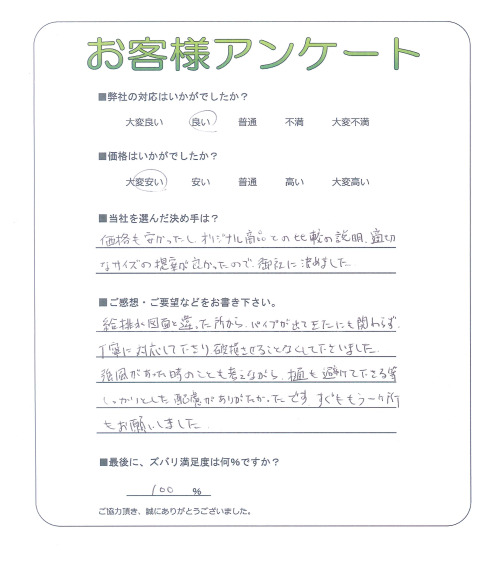 お客様アンケート
■弊社の対応はいかがでしたか？
大変良い 良い 普通 不満 大変不満
■価格はいかがでしたか？
大変安い 安い 普通 高い 大変高い
■当社を選んだ決め手は？
価格も安かったし、オリジナル商品との比較の説明、適切
なサイズの提案が良かったので、御社に決めました。
■ご感想・ご要望などをお書き下さい。
給排水図面と違った所から、パイプが出てきたにも関わらず、
丁寧に対応して下さり破損させることなくして下さいました。
強風があった時のことも考えながら、植も避けて下さる等
しっかりとした配慮がありがたかったです。すぐにももう一ヶ所
もお願いしました。
■最後に、ズバリ満足度は何％ですか？
100 ％
ご協力頂き、誠にありがとうございました。